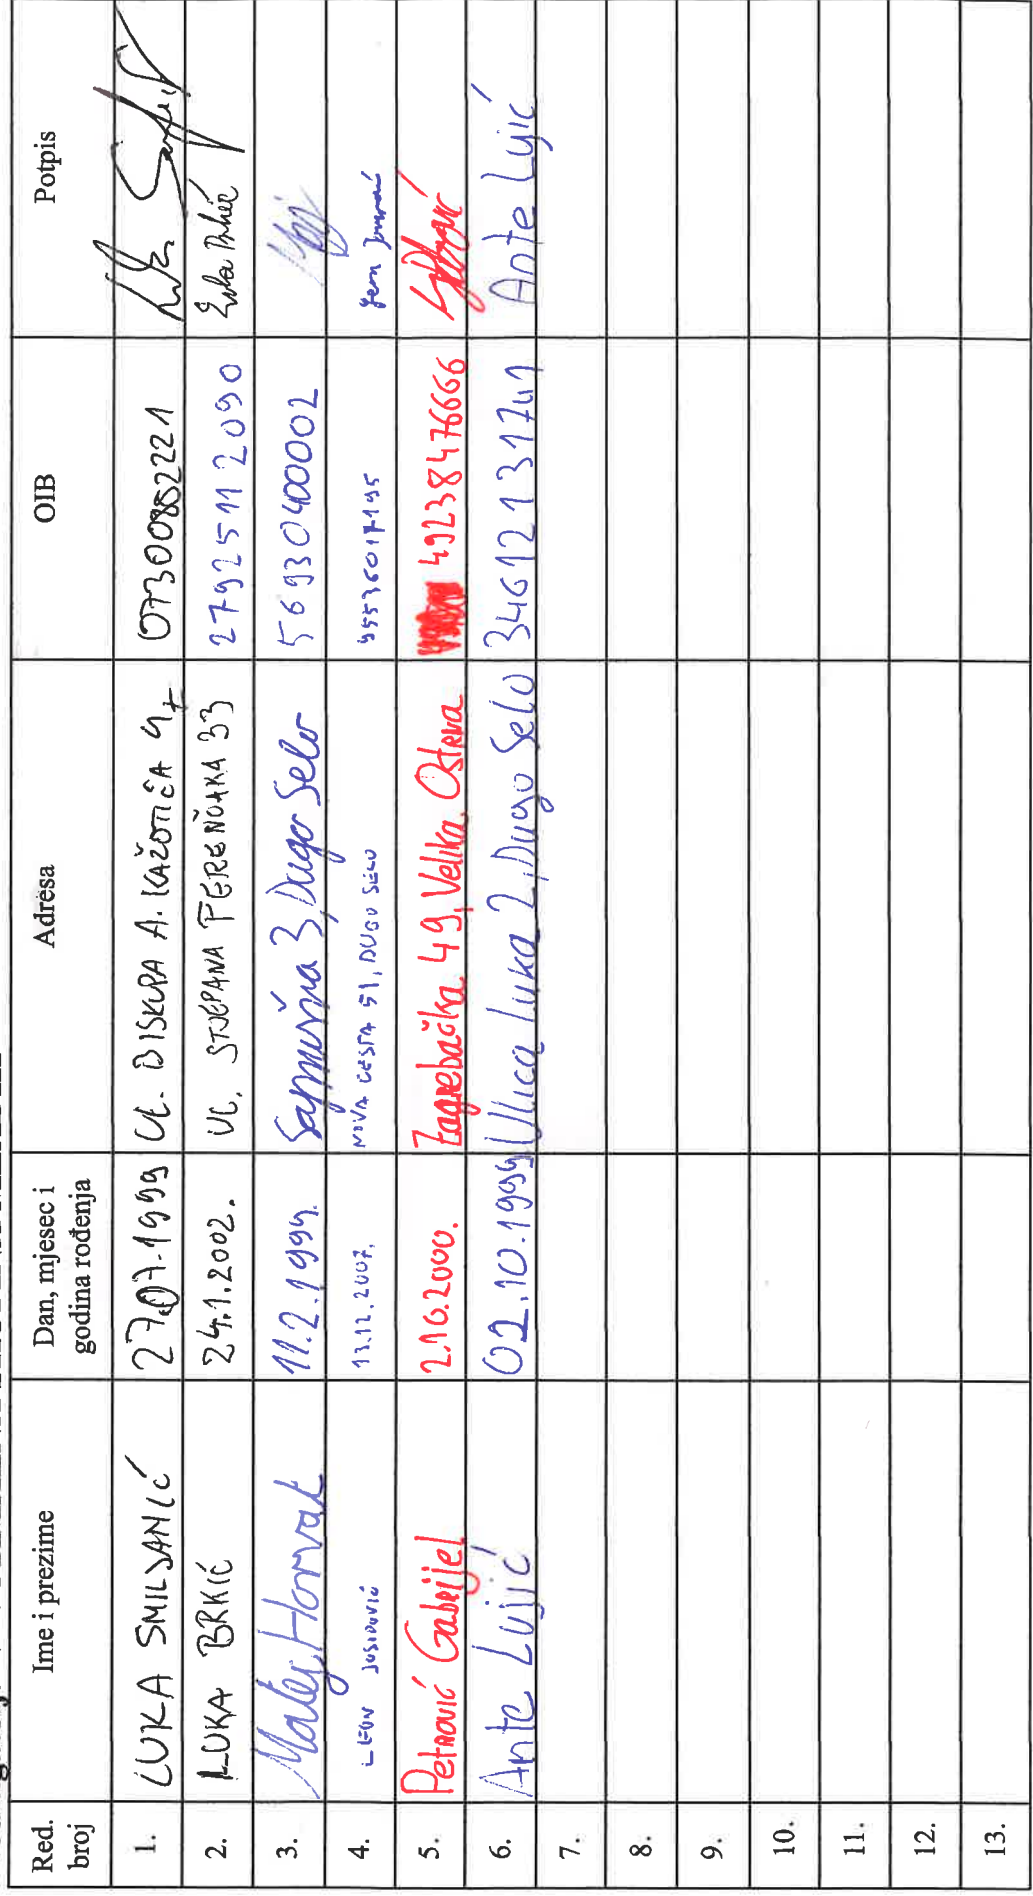 Red. broj | Ime i prezime | Dan, mjesec i godina rođenja | Adresa | OIB | Potpis
1. | LUKA SMILJANIĆ | 27.07.1999 | UL. BISKUPA A. KAŽOTIĆA 47 | 07300852221
2. | LUKA BRKIĆ | 24.1.2002. | UL. STJEPANA FERENČAKA 33 | 27925112090 | Luka Brkić
3. | Matej Horvat | 11.2.1999. | Dugo Selo | 56930400002
4. | LEON | 13.12.2007. | NOVA CESTA 51, DUGO SELO | 95536017195
5. | Petrović Gabrijel | 2.10.2000. | Zagrebačka 49, Velika Ostrna | 49238476666
6. | Ante Lujić | 02.10.1999 | Ulica Luka 2, Dugo Selo | 34612131741 | Ante Lujić
7.
8.
9.
10.
11.
12.
13.